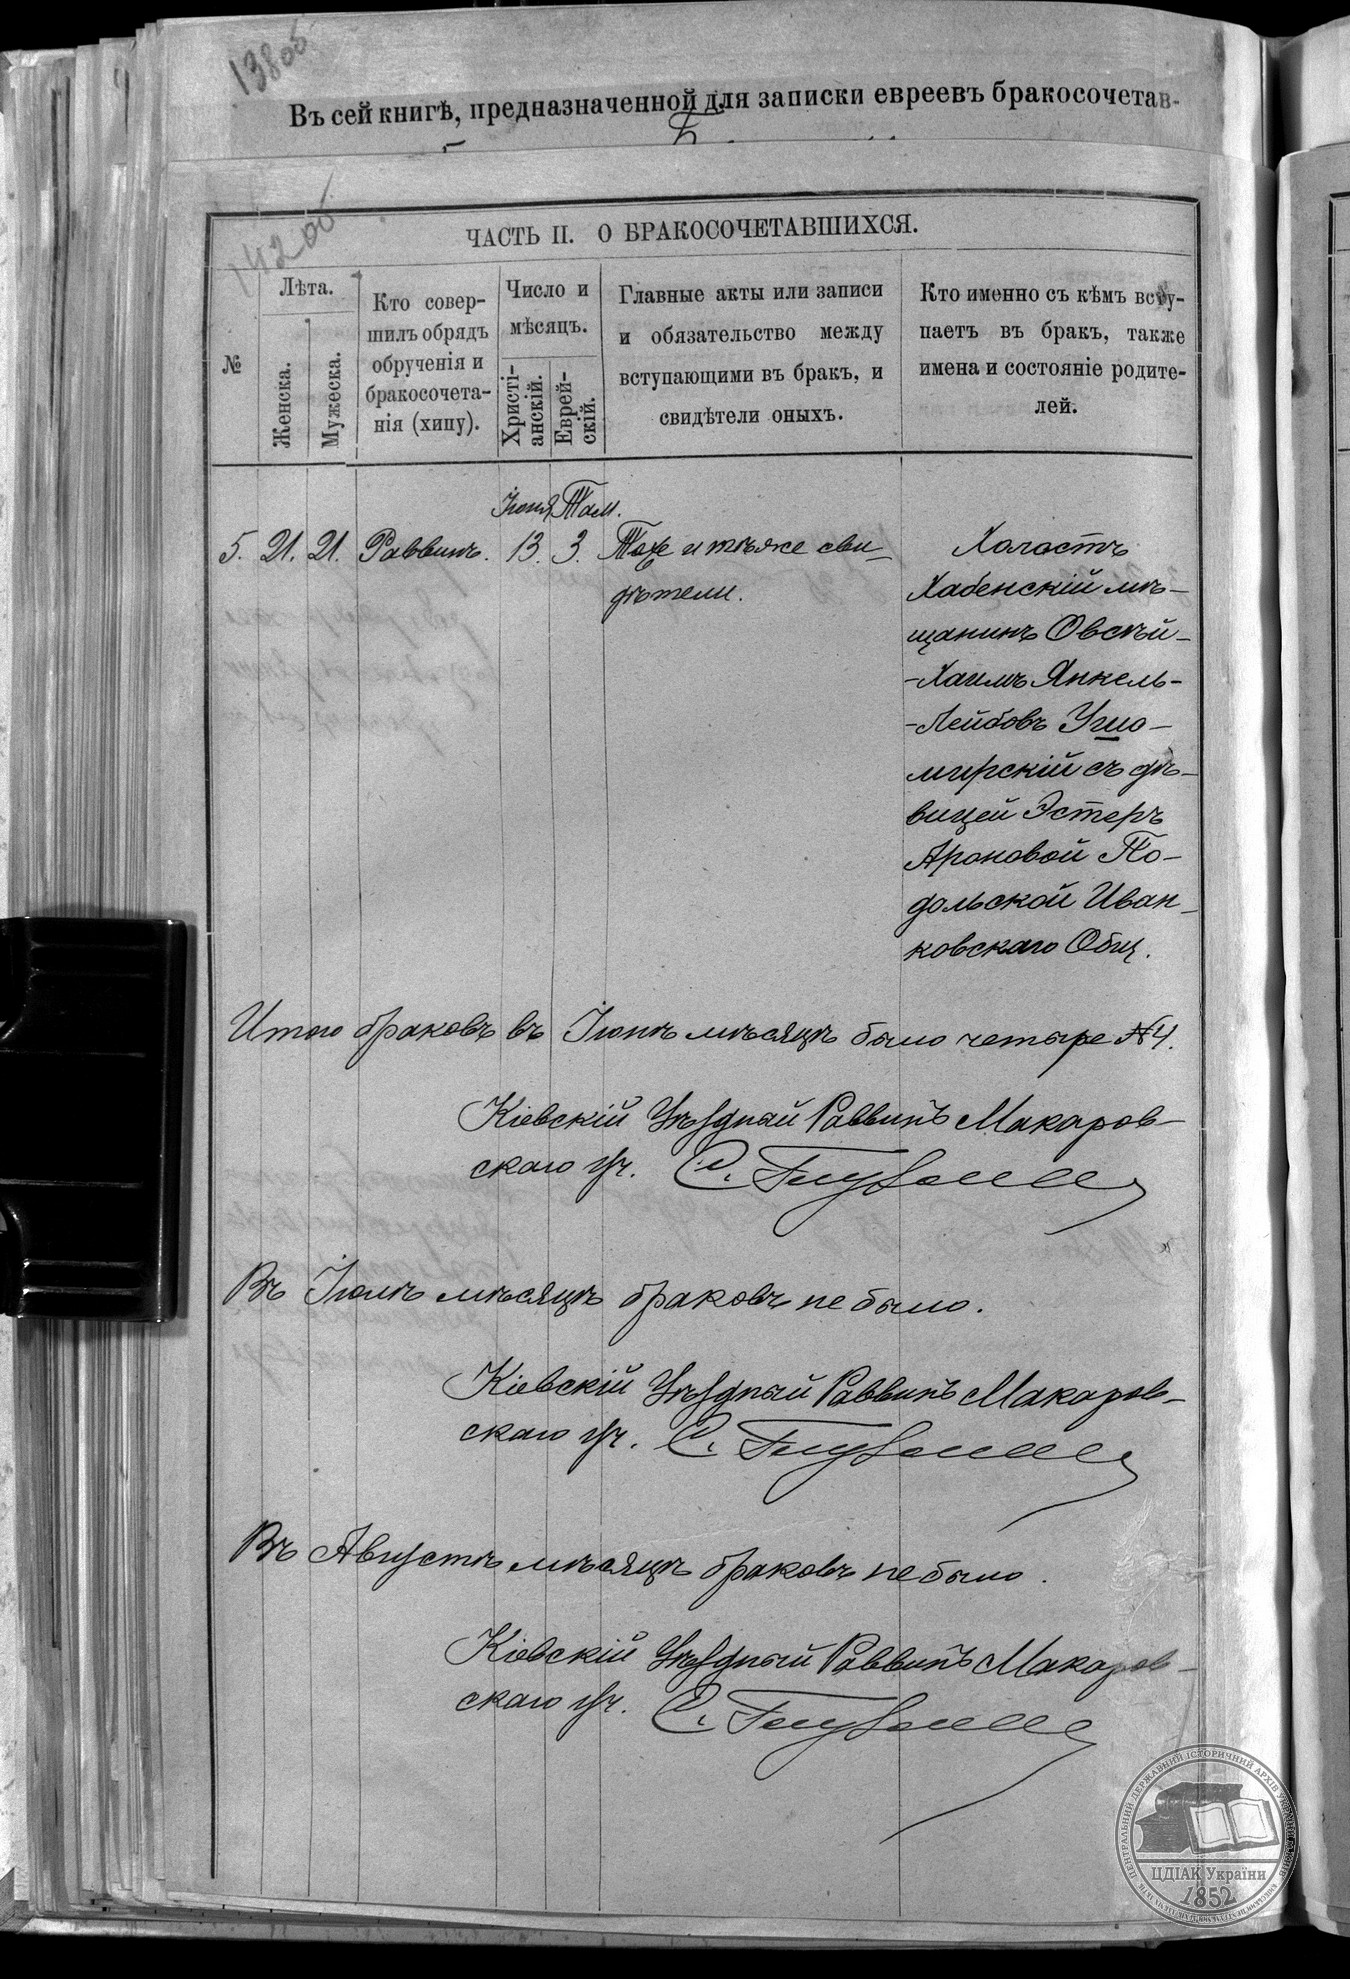 138об
Въ сей книгѣ, предназначенной для записки евреевъ бракосочетав-
142об
ЧАСТЬ II. О БРАКОСОЧЕТАВШИХСЯ.
№
Лѣта.
Женска.
Мужеска.
Кто совер-
шилъ обрядъ
обрученія и
бракосочета-
нія (хипу).
Число и
мѣсяцъ.
Христі-
анскій.
Еврей-
скій.
Главные акты или записи
и обязательство между
вступающими въ бракъ, и
свидѣтели оныхъ.
Кто именно съ кѣмъ всту-
паетъ въ бракъ, также
имена и состояніе родите-
лей.
Іюня Там.
5. 21. 21. Раввинъ. 13. 3. Тоже и тѣже сви-
дѣтели.
Холостъ
Хабенскій мѣ-
щанинъ Овсѣй-
-Хаимъ Янкель-
-Лейбовъ Ушо-
мирскій съ дѣ-
вицей Эстеръ
Ароновой По-
дольской Иван-
ковскаго Общ.
Итого браковъ въ Іюнѣ мѣсяцѣ было четыре №4.
Кіевскій Уѣздный Раввинъ Макаров-
скаго уч. С.
Въ Іюлѣ мѣсяцѣ браковъ не было.
Кіевскій Уѣздный Раввинъ Макаров-
скаго уч. С.
Въ Августѣ мѣсяцѣ браковъ не было.
Кіевскій Уѣздный Раввинъ Макаров-
скаго уч. С.
ЦЕНТРАЛЬНИЙ ДЕРЖАВНИЙ ІСТОРИЧНИЙ АРХІВ УКРАЇНИ
ЦДІАК України
1852